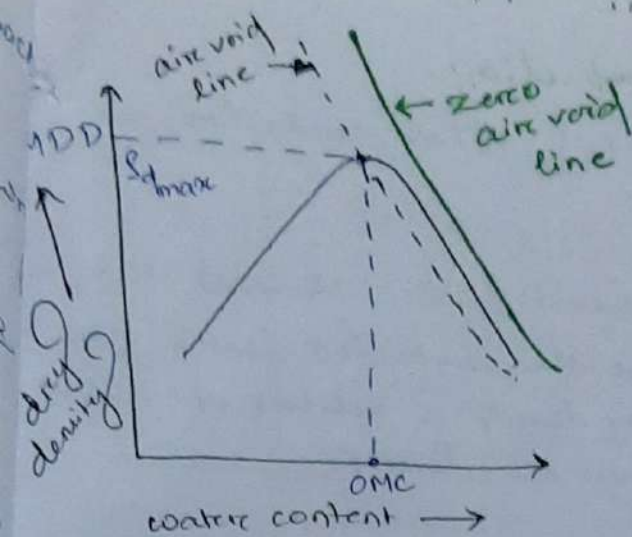 air void
line
← zero
air void
line
MDD
ρdmax
dry
density
OMC
water content →